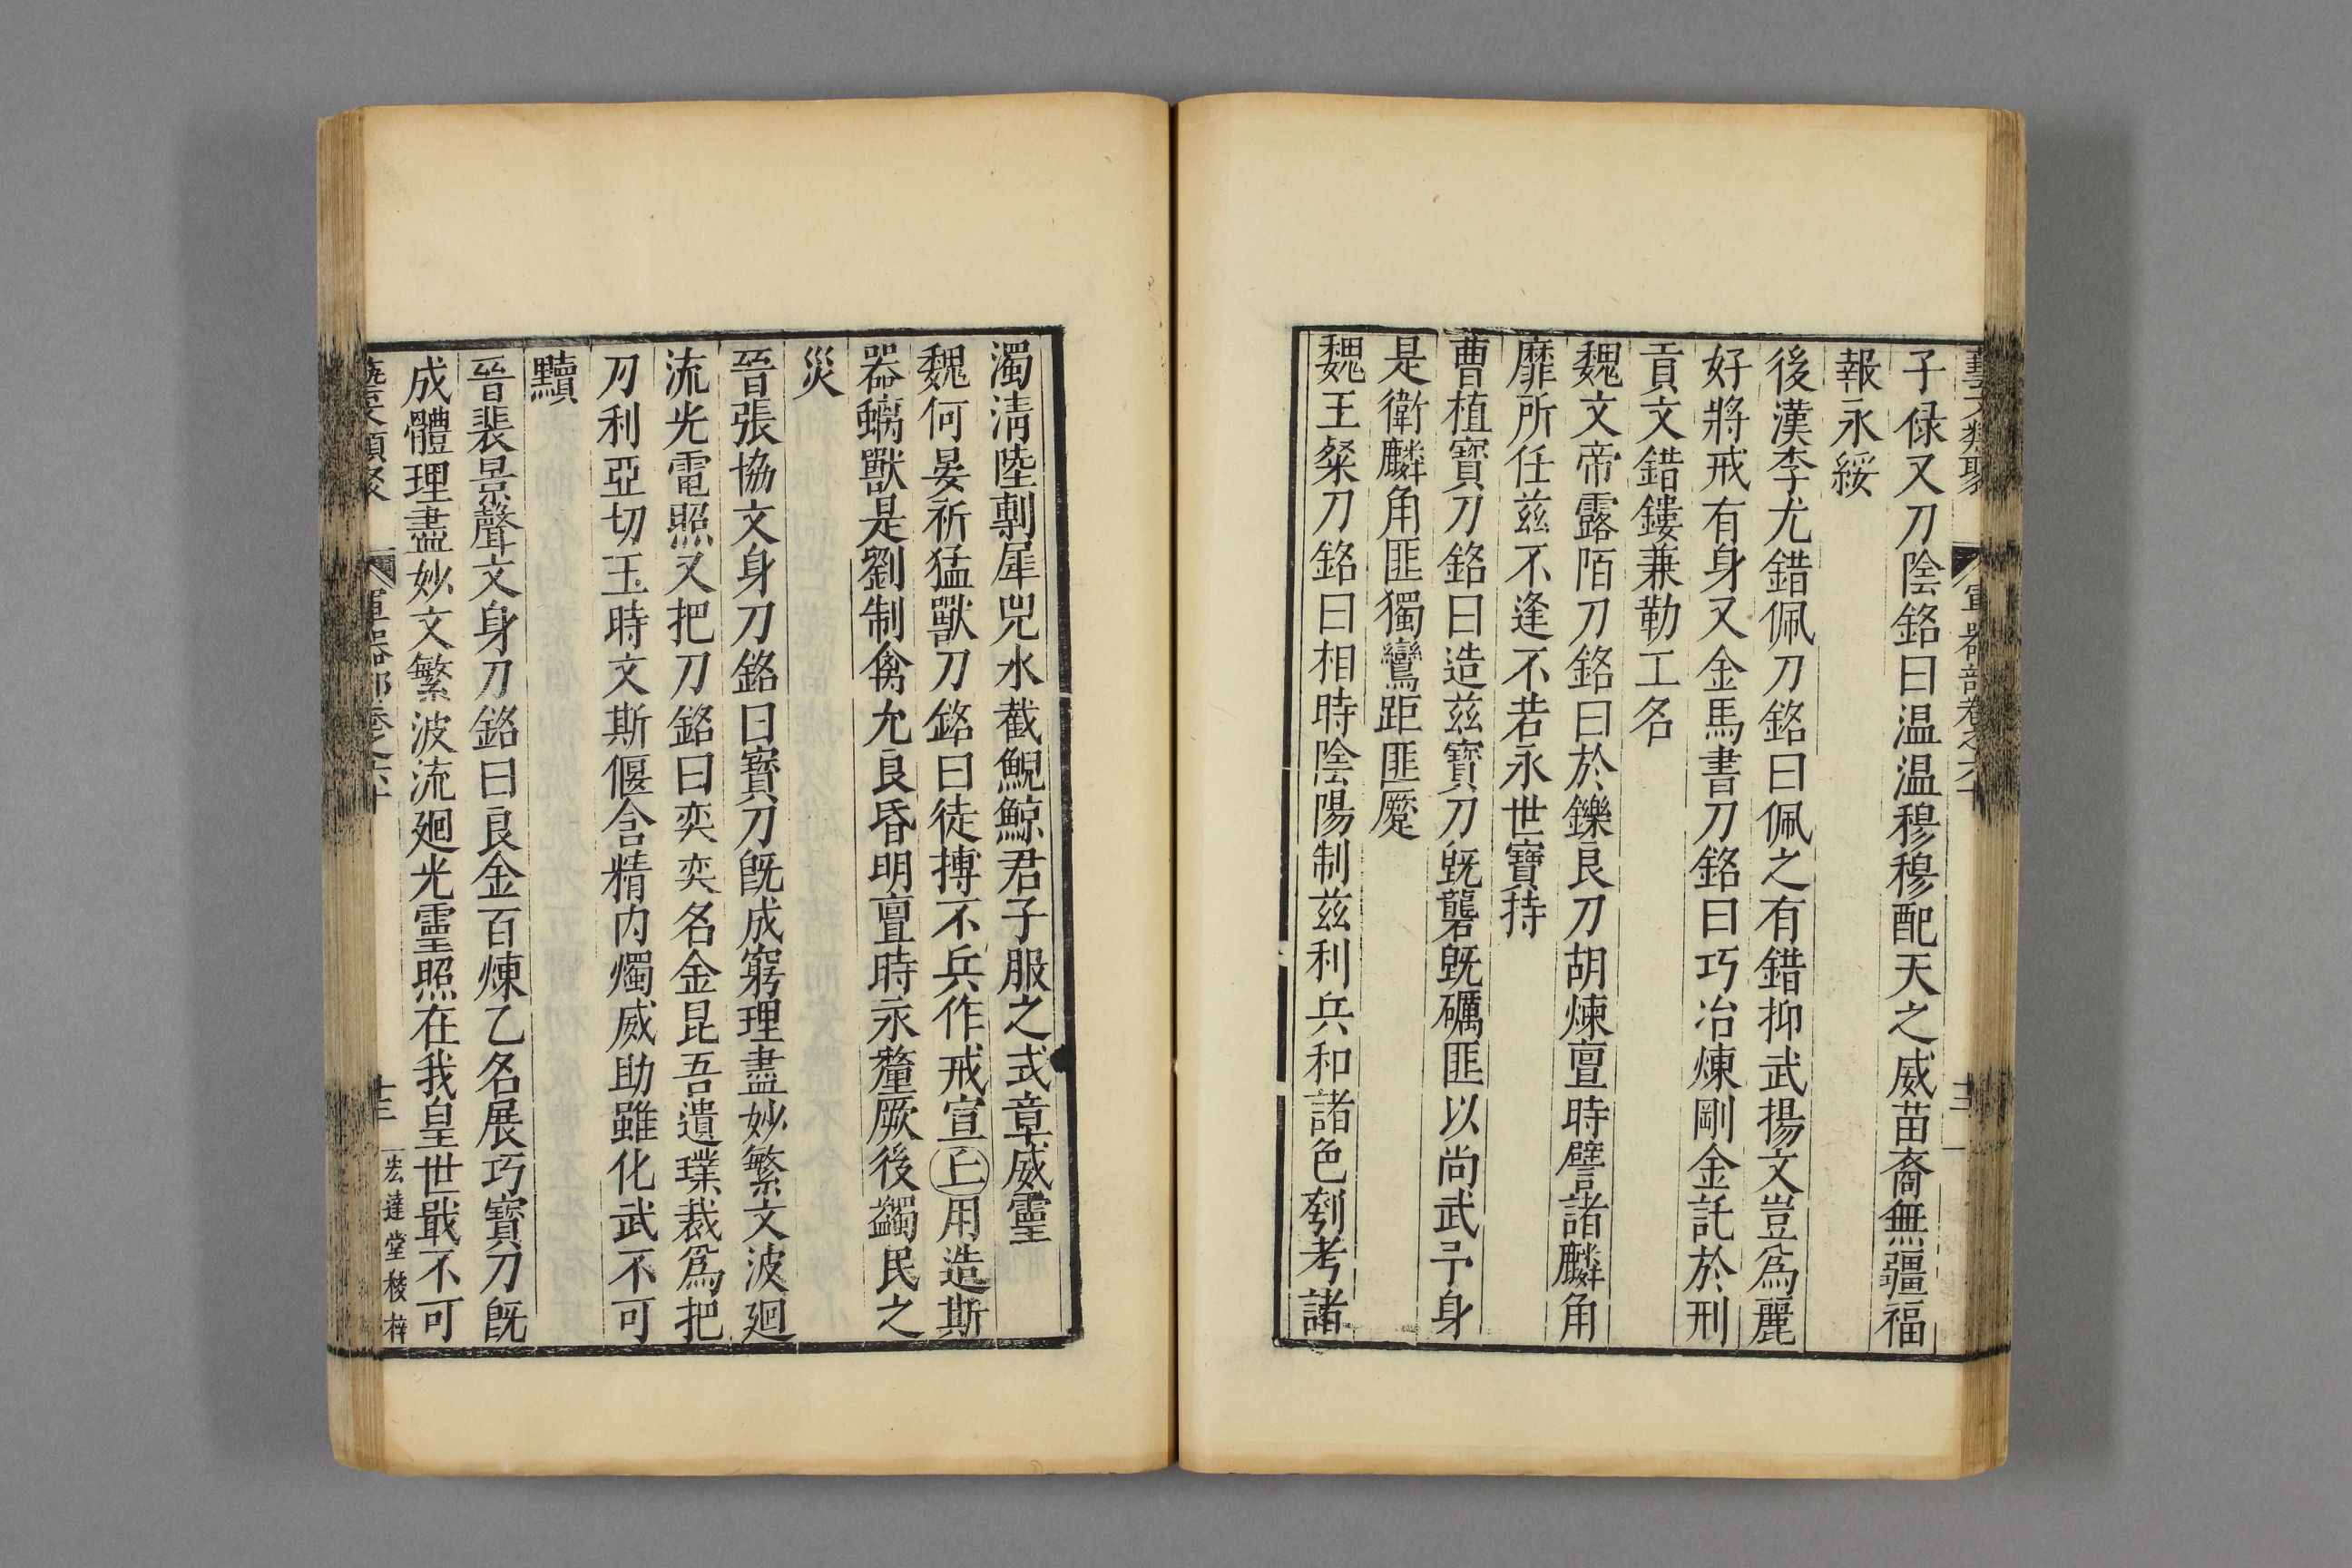 藝文類聚 軍器部卷之六十 十三
子㑉又刀陰銘曰温温穆穆配天之威苗裔無疆福
報永綏
後漢李尤錯佩刀銘曰佩之有錯抑武揚文豈爲麗
好將戒有身又金馬書刀銘曰巧冶煉剛金託於刑
貢文錯鏤兼勒工名
魏文帝露陌刀銘曰於鑠良刀胡煉亶時譬諸麟角
靡所任兹不逢不若永世寶持
曹植寶刀銘曰造兹寶刀旣礱旣礪匪以尚武予身
是衛麟角匪獨鸞距匪蹷
魏王粲刀銘曰相時陰陽制兹利兵和諸色劑考諸
濁清陸剸犀兕水截鯢鯨君子服之式章威靈
魏何晏斫猛獸刀銘曰徒搏不兵作戒宣上用造斯
器螭獸是劉制禽允良昏明亶時永釐厥後蠲民之
災
晉張協文身刀銘曰寶刀旣成窮理盡妙繁文波廻
流光電照又把刀銘曰奕奕名金昆吾遺璞裁爲把
刀利亞切玉時文斯偃含精内燭威助雖化武不可
黷
晉裴景聲文身刀銘曰良金百煉乙名展巧寶刀旣
成體理盡妙文繁波流廻光靈照在我皇世戢不可
藝文類聚 軍器部卷之六十 十三 宏達堂校梓